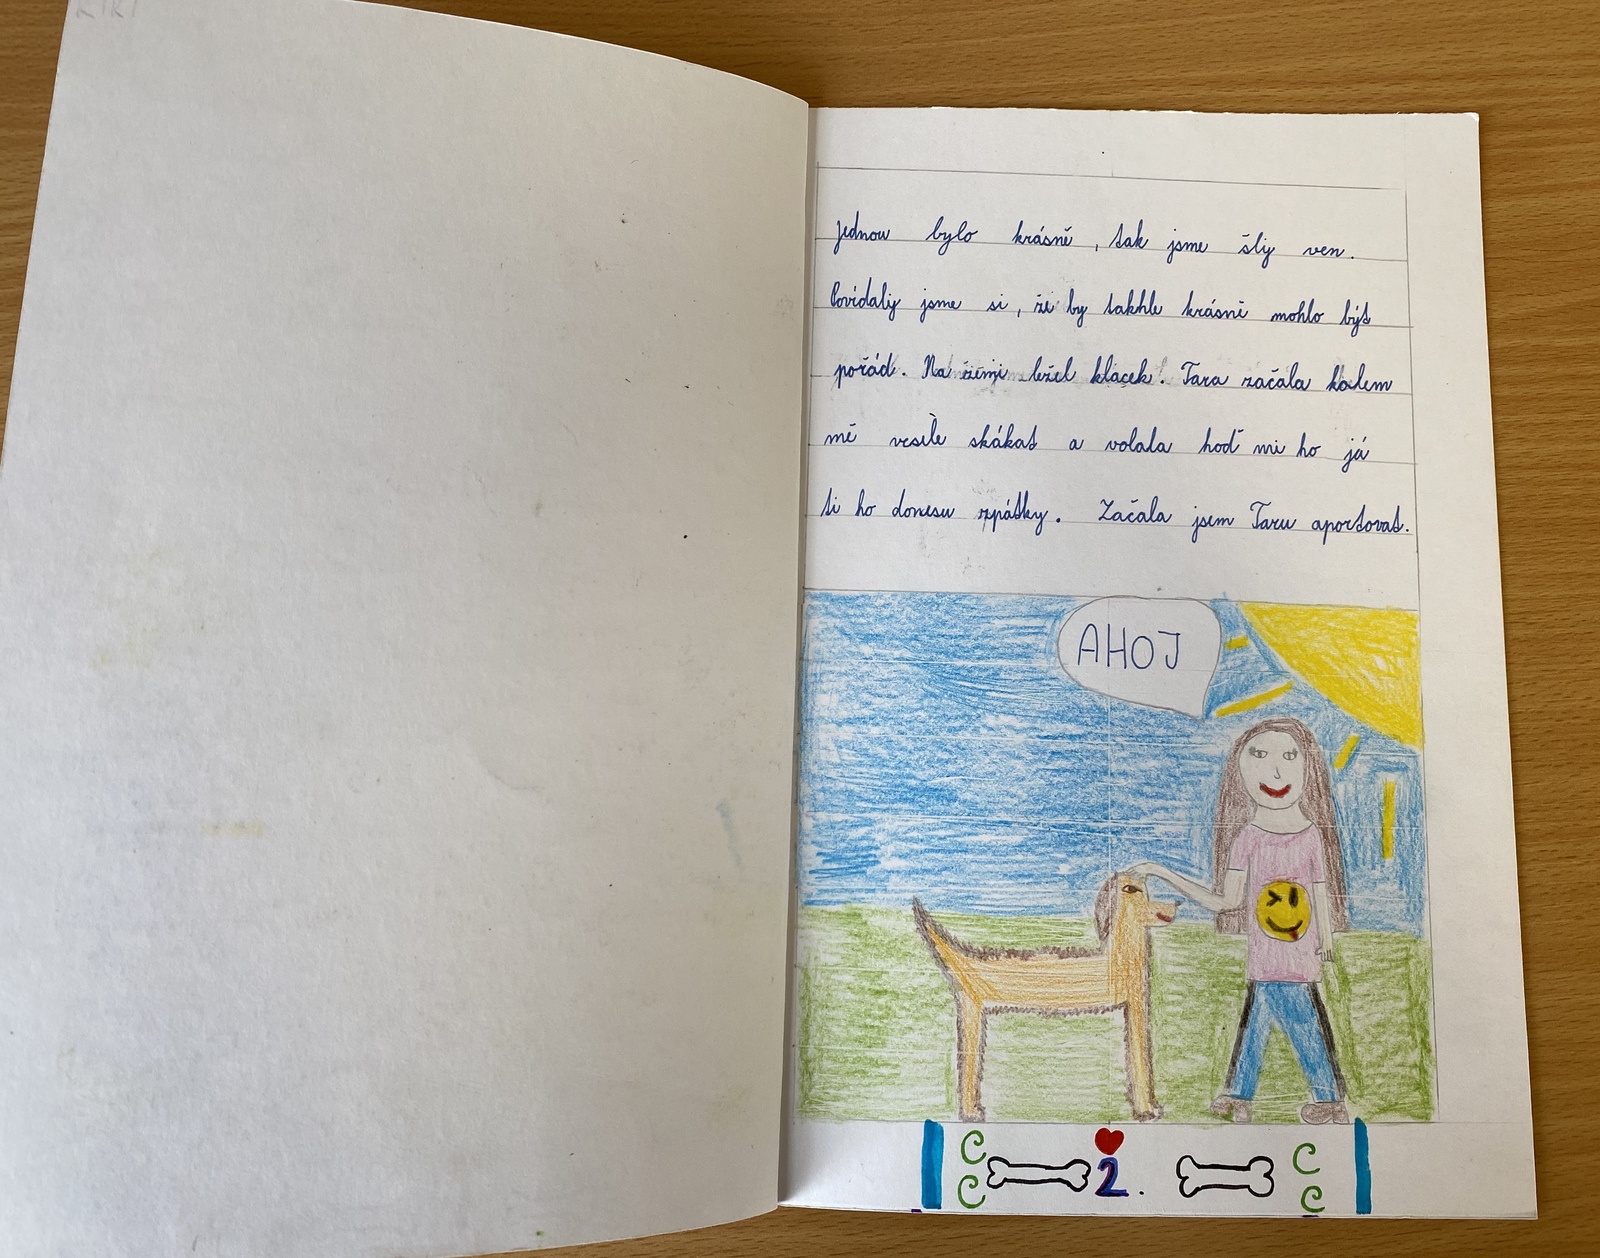 KIKI
Jednou bylo krásně, tak jsme šly ven.
Povídaly jsme si, že by takhle krásně mohlo být
pořád. Na zemi ležel klacek. Tara začala kolem
mě vesele skákat a volala hoď mi ho já
ti ho donesu zpátky. Začala jsem Taru aportovat.
AHOJ
C C
C 2. C